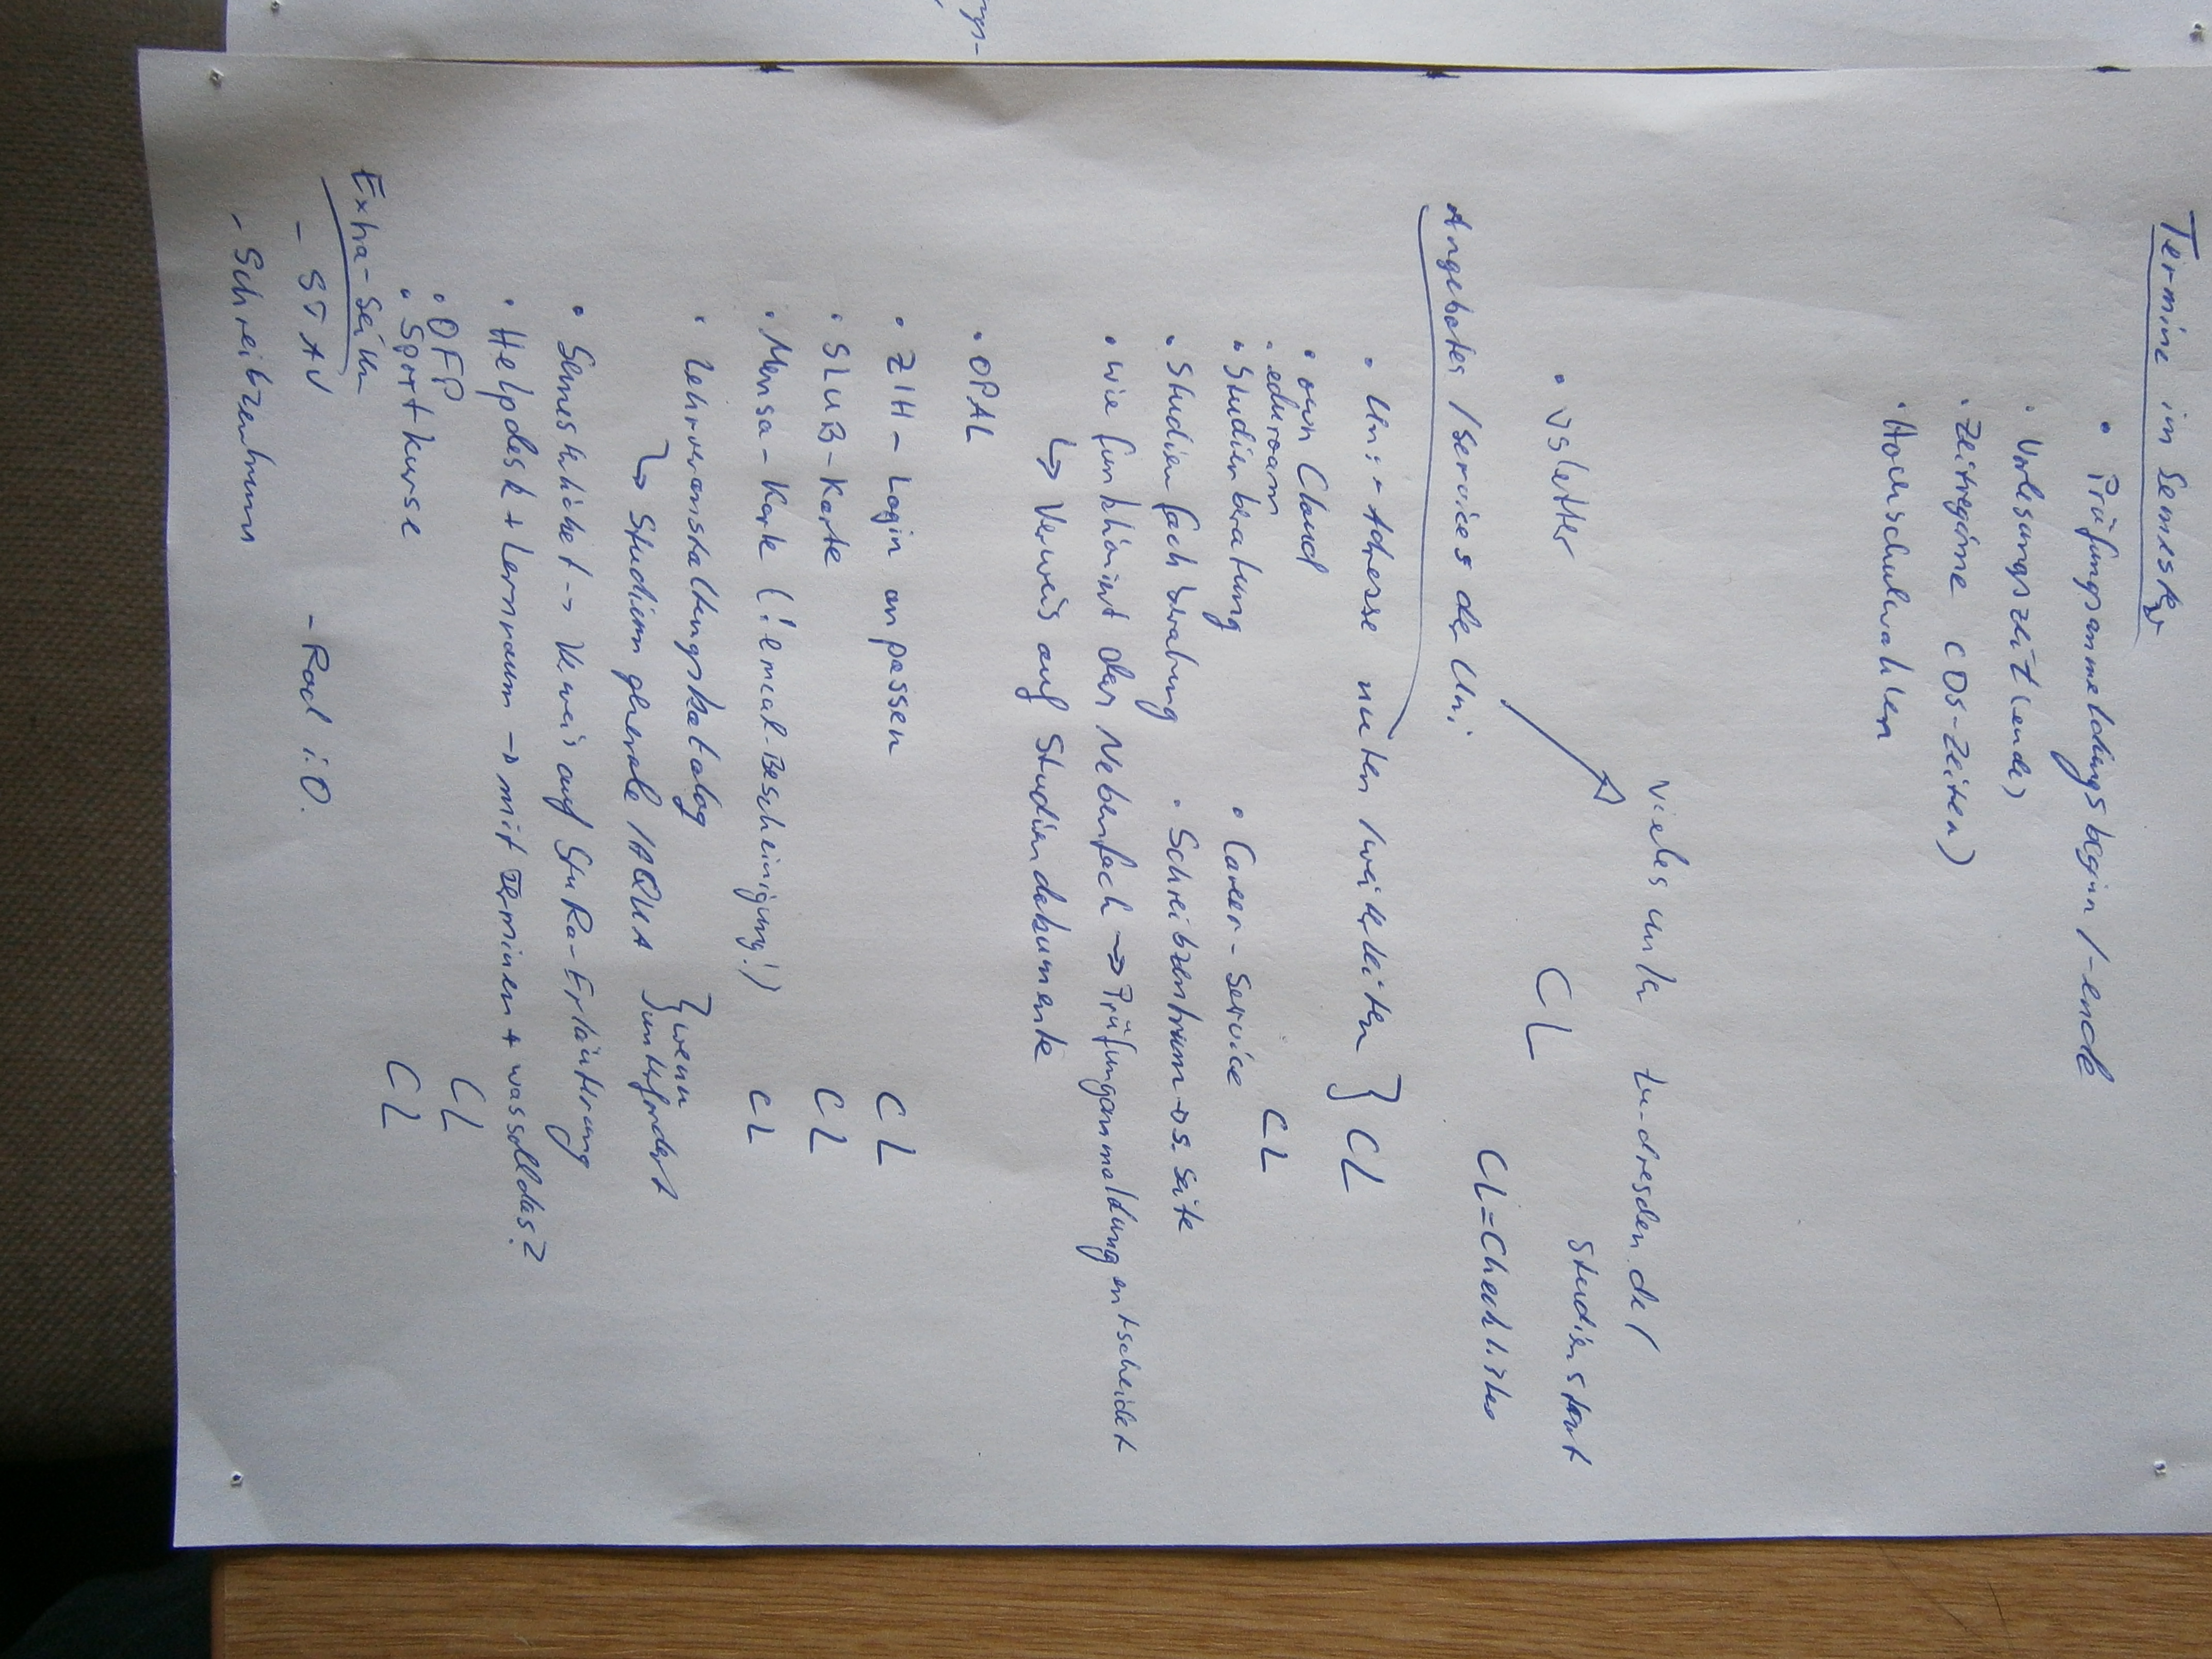 Termine im Semester
• Prüfungsanmeldungsbeginn /-ende
• Vorlesungszeit (ende)
• Zeitregime (DS-Zeiten)
• Hochschulwahlen
vieles unter tu-dresden.de/
studienstart
• vsletter CL
CL=Checkliste
Angebote /Services der Uni
• Uni-Adresse nutzen /weiterleiten } CL
• own Cloud
• eduroam CL
• Studienberatung • Career-Service
• Studienfachberatung • Schreibzentrum → s. Seite
• wie funktioniert das Nebenfach → Prüfunganmeldung entscheidet
↳ Verweis auf Studiendokumente
• OPAL
• ZIH - Login anpassen CL
• SLUB-Karte CL
• Mensa-Karte (! emeal-Bescheinigung!) CL
• Lehrveranstaltungskatalog } wenn
↳ Studium generale /AQUA unterfordert
• Semesterticket → Verweis auf StuRa-Erläuterung
• Helpdesk + Lernraum → mit Terminen + was soll das?
• OFP CL
• Sportkurse CL
Extra-Seiten
- STAV - Rad i.O.
- Schreibzentrum
ngs-